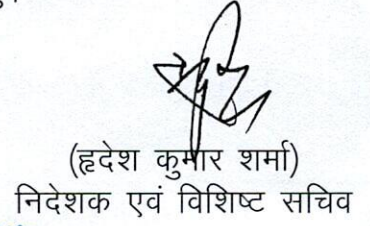 (हृदेश कुमार शर्मा)
निदेशक एवं विशिष्ट सचिव